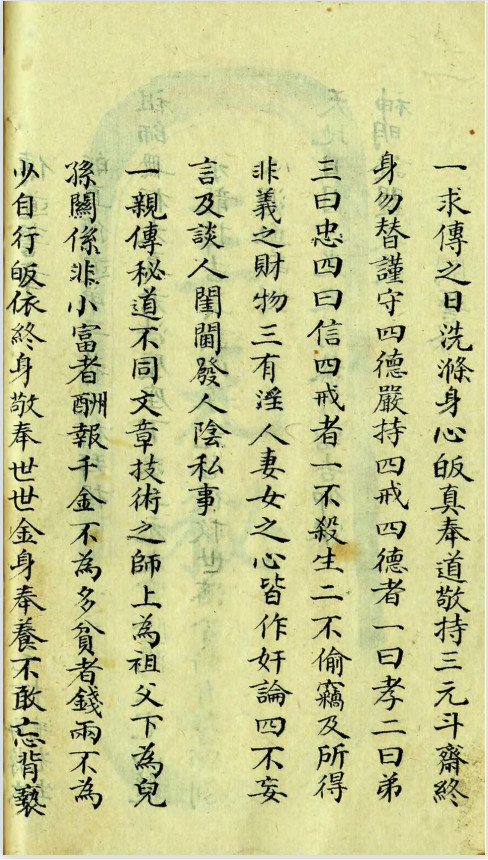 一求傳之日洗滌身心皈真奉道敬持三元斗齋終
身勿替謹守四德嚴持四戒四德者一曰孝二曰弟
三曰忠四曰信四戒者一不殺生二不偷竊及所得
非義之財物三有淫人妻女之心皆作奸論四不妄
言及談人閨閫發人陰私事
一親傳秘道不同文章技術之師上為祖父下為兒
孫關係非小富者酬報千金不為多貧者錢兩不為
少自行皈依終身敬奉世世金身奉養不敢忘背褻